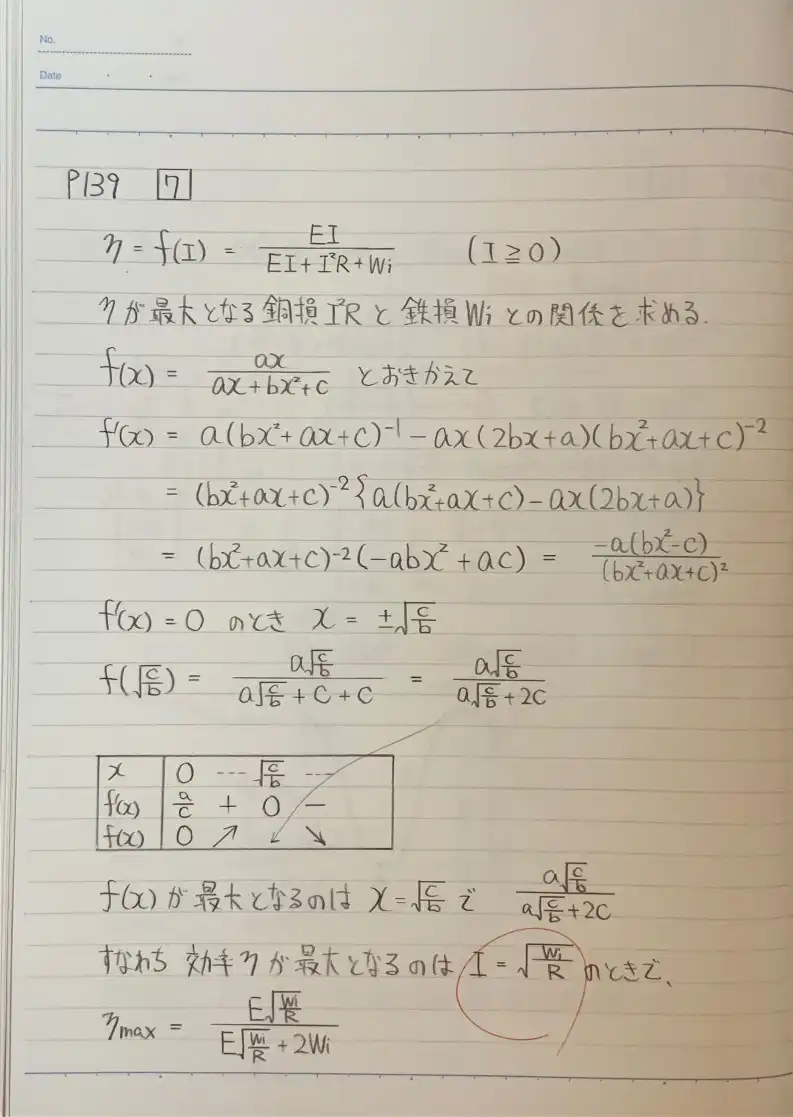 No.
Date
P139 7
η = f(I) = EI / (EI + I²R + Wi) (I ≧ 0)
ηが最大となる銅損I²Rと鉄損Wiとの関係を求める.
f(x) = ax / (ax + bx² + c) とおきかえて
f'(x) = a(bx² + ax + c)⁻¹ − ax(2bx + a)(bx² + ax + c)⁻²
= (bx² + ax + c)⁻²{a(bx² + ax + c) − ax(2bx + a)}
= (bx² + ax + c)⁻²(−abx² + ac) = −a(bx² − c) / (bx² + ax + c)²
f'(x) = 0 のとき x = ±√(c/b)
f(√(c/b)) = a√(c/b) / (a√(c/b) + C + C) = a√(c/b) / (a√(c/b) + 2C)
x 0 … √(c/b) …
f'(x) a/c + 0 −
f(x) 0 ↗ ↙ ↘
f(x)が最大となるのは x = √(c/b) で a√(c/b) / (a√(c/b) + 2C)
すなわち 効率ηが最大となるのは I = √(Wi/R) のときで、
ηmax = E√(Wi/R) / (E√(Wi/R) + 2Wi)